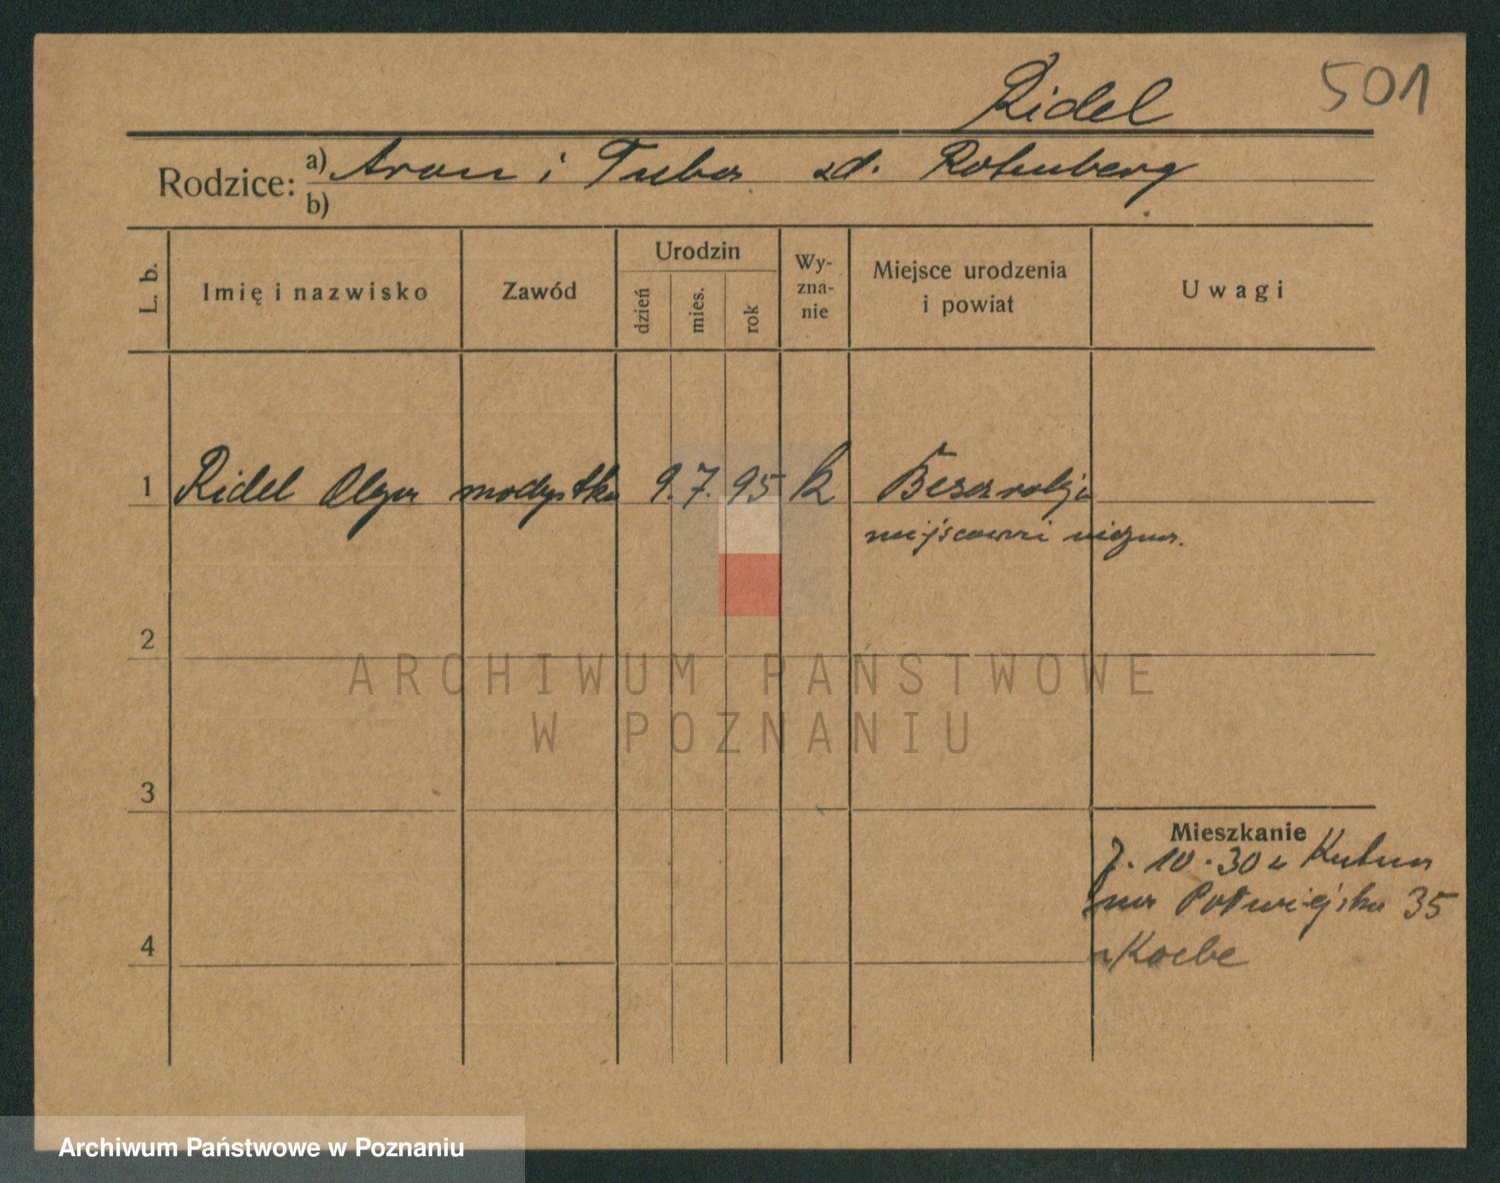 501
Ridel
Rodzice: a) Aron i Tuba zd. Rotenberg
b)
L. b.
Imię i nazwisko
Zawód
Urodzin
dzień
mies.
rok
Wy-
zna-
nie
Miejsce urodzenia
i powiat
Uwagi
1 Ridel Olga modystka 9. 7. 95 k Besarabja
2
3
4
Mieszkanie
7. 10. 30 z Kutna
na Półwiejska 35
ARCHIWUM PAŃSTWOWE
W POZNANIU
Archiwum Państwowe w Poznaniu